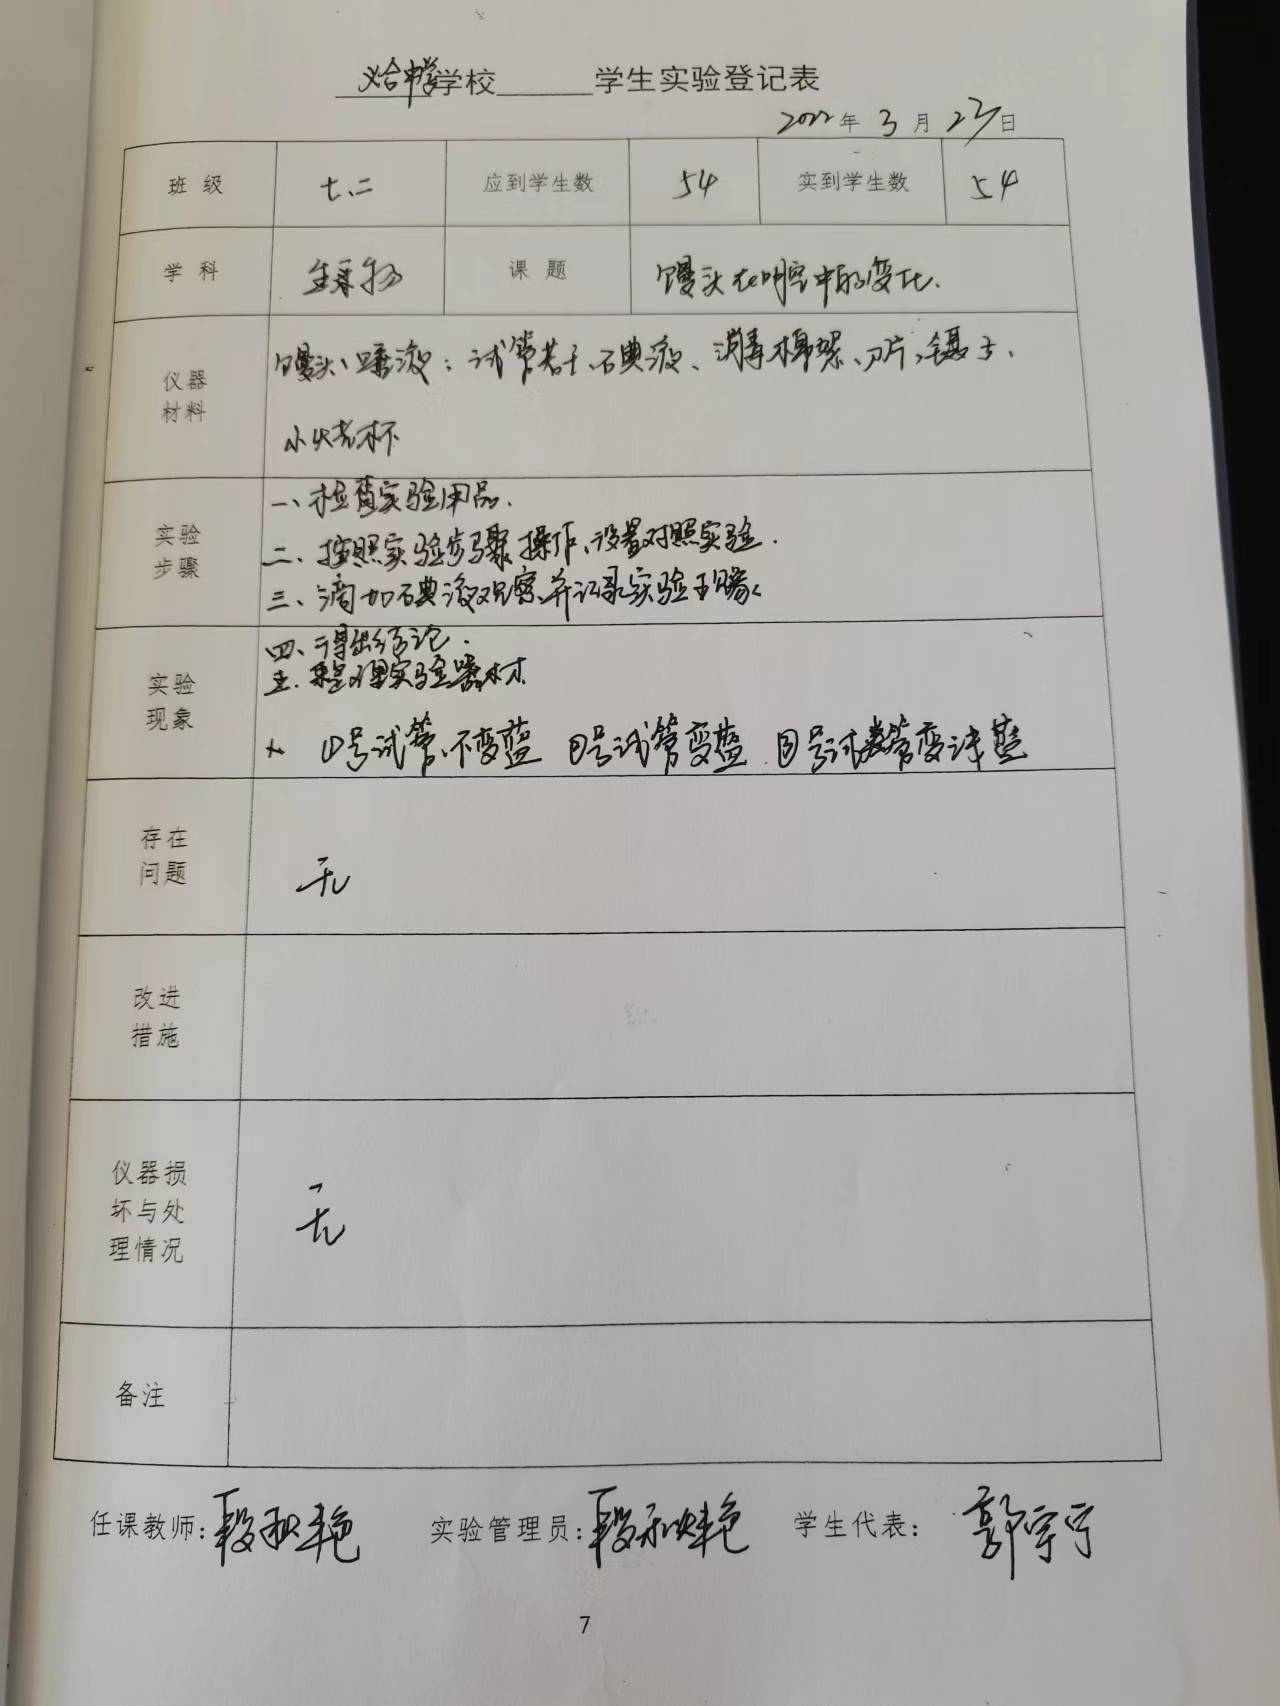 义合中学学校______学生实验登记表
2022年3月23日
班 级 七.二 应到学生数 54 实到学生数 54
学 科 生物 课 题 馒头在口腔中的变化.
仪器
材料
馒头、唾液；试管若干、石典液、消毒棉絮、刀片,镊子、
小烧杯
实验
步骤
一、检查实验用品.
二、按照实验步骤操作、设置对照实验.
三、滴加石典液观察、并记录实验现象
实验
现象
四、得出结论.
五.整理实验器材
①号试管不变蓝 ②号试管变蓝 ③号试管变浅蓝
存在
问题
无
改进
措施
仪器损
坏与处
理情况
无
备注
任课教师:段秋艳 实验管理员:段秋艳 学生代表: 郭宇宁
7